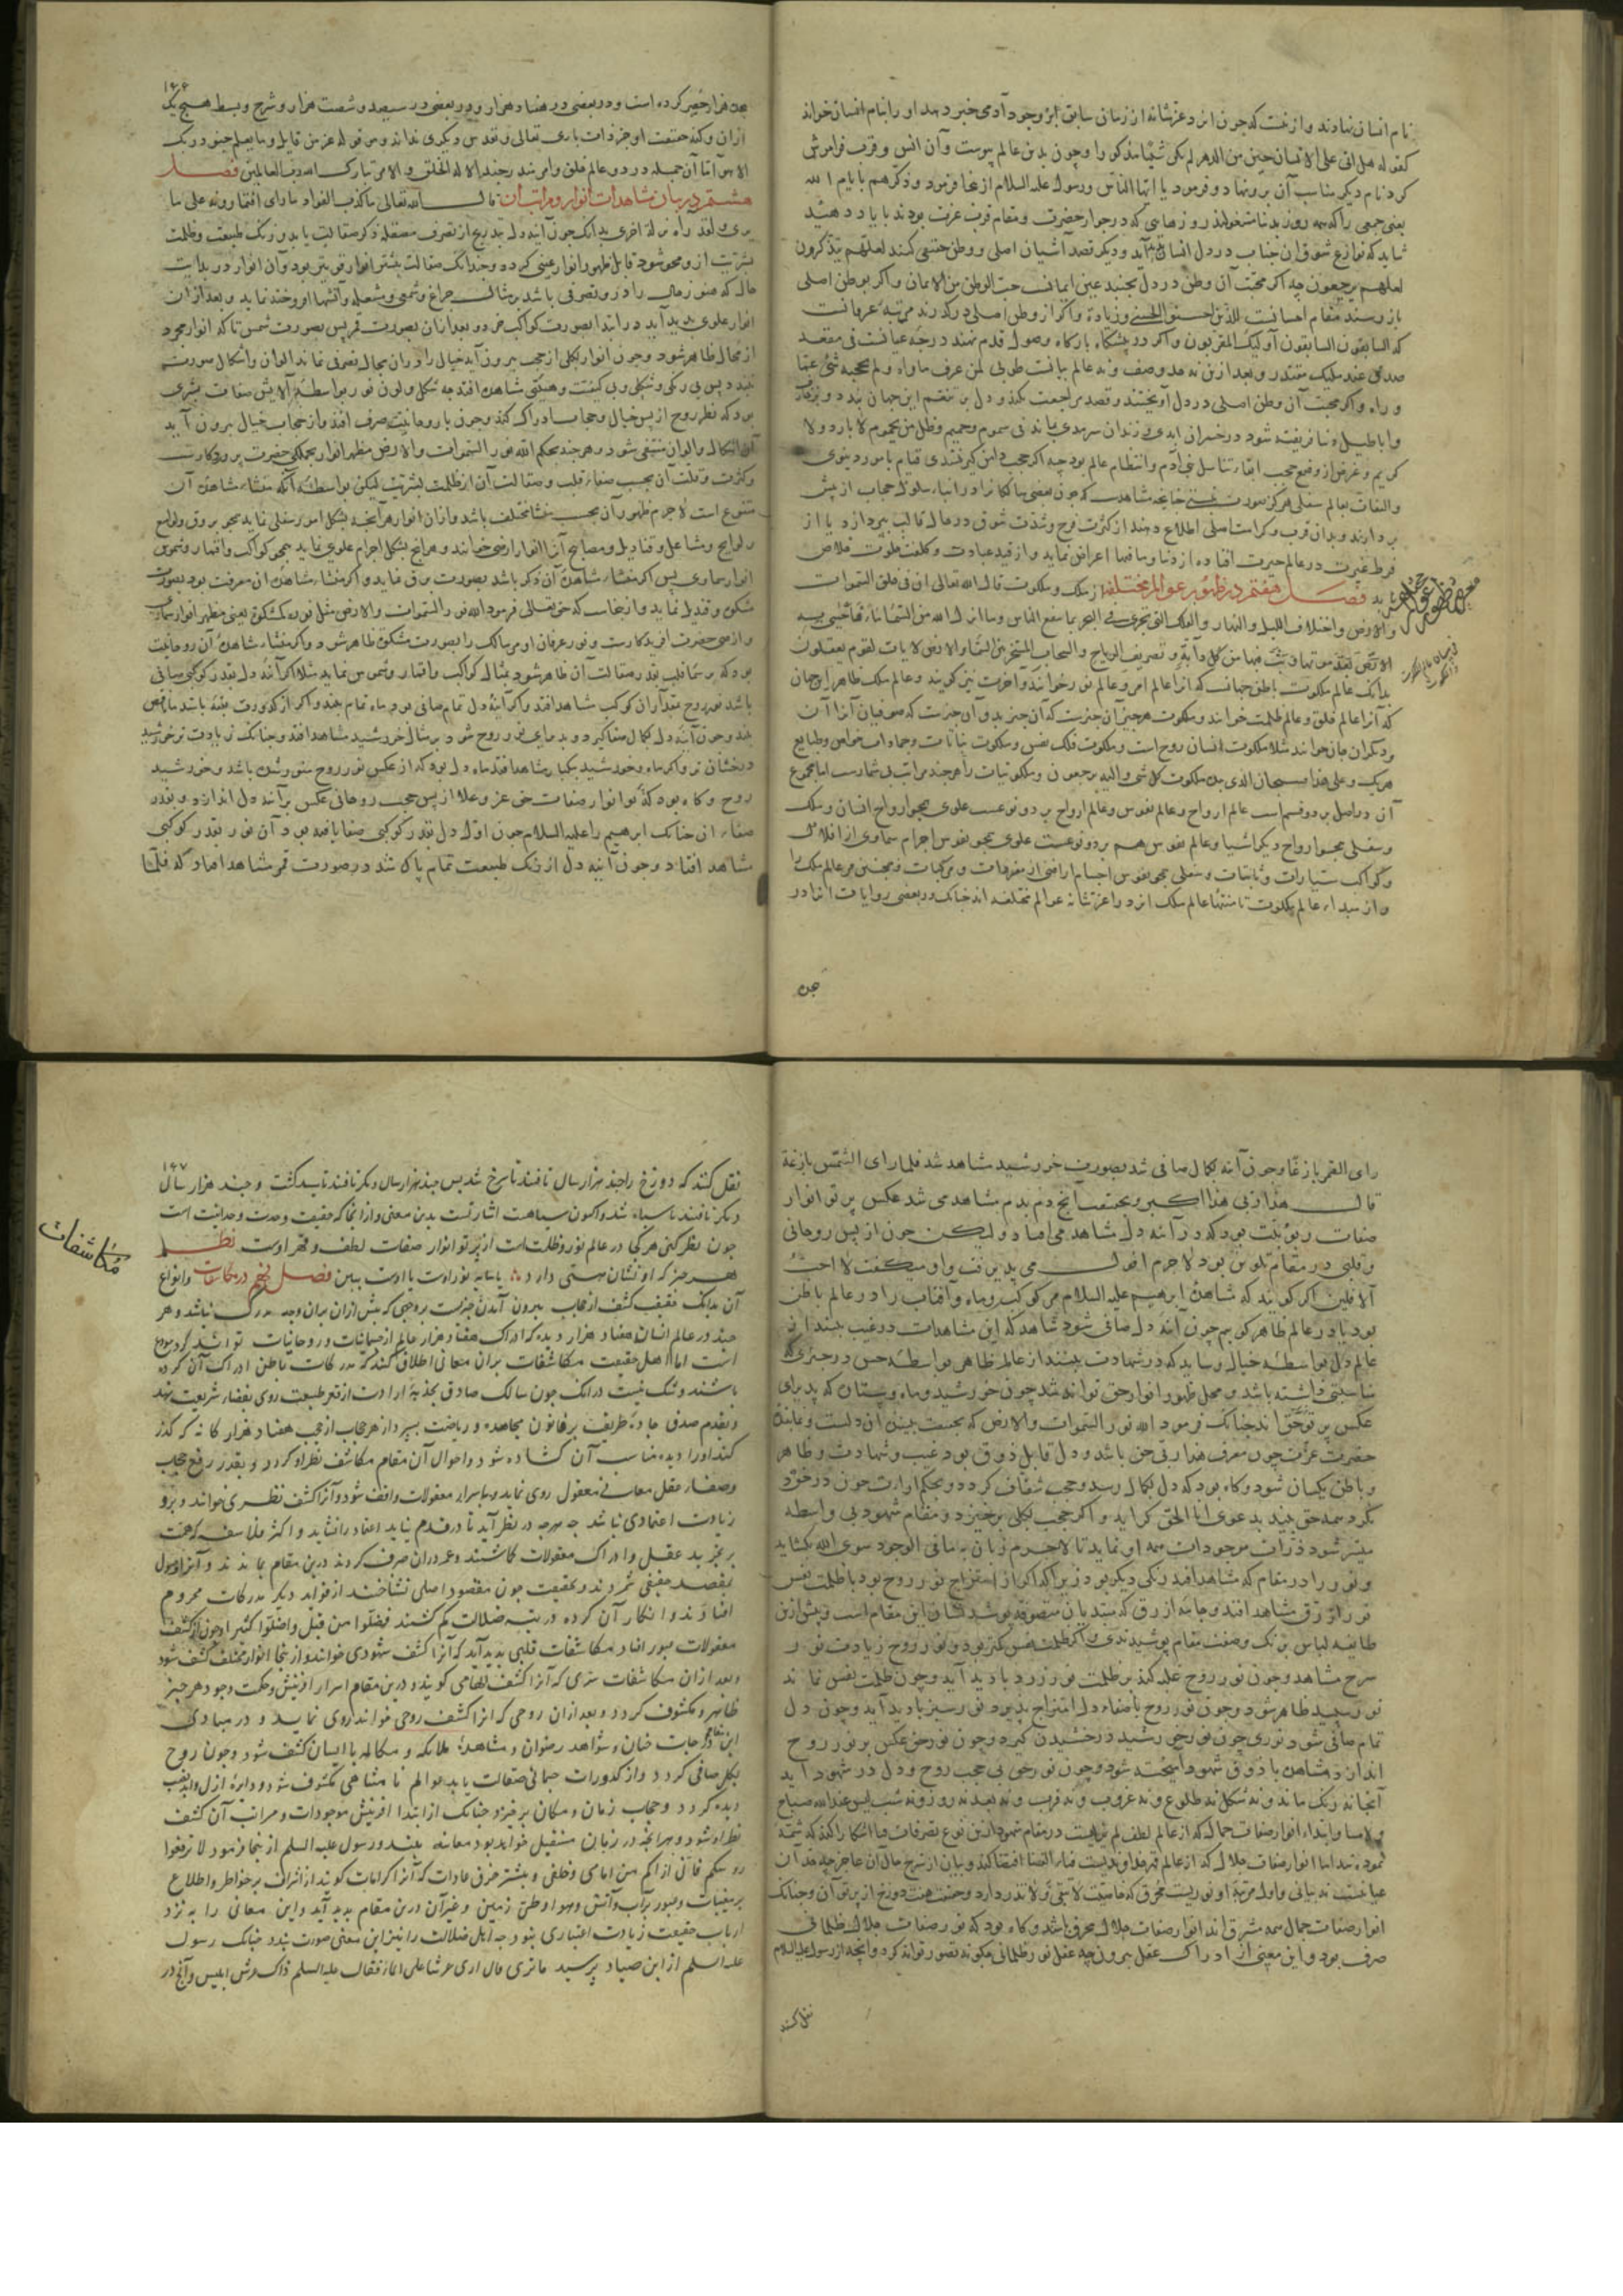 نام انسان نهادند و ازینست که چون ایزد عزشانه از زمان سابق بر وجود آدمی خبر دهد او را بنام انسان خواند
کقوله هل اتی علی الانسان حین من الدهر لم یکن شیئا مذکورا و چون بدین عالم پیوست و آن انس و قرب فراموش
کرد نام دیگر مناسب آن برو نهاد و فرمود یا ایها الناس و رسول علیه السلام ازینجا فرمود و ذکرهم بایام الله
یعنی جمعی را که همه روز بدنیا مشغولند روزهایی که در جوار حضرت و مقام قربت عزت بودند با یاد دهید
شاید که نوازع شوق آن جناب در دل ایشان پدید آید و دیگر قصد آشیان اصلی و وطن حقیقی کنند لعلهم یتذکرون
لعلهم یرجعون چه اگر محبت آن وطن در دل بجنبد عین ایمانست حب الوطن من الایمان و اگر بوطن اصلی
باز رسند مقام احسانست للذین احسنوا الحسنی و زیادة و اگر از وطن اصلی درگذرند مرتبه عرفانست
که السابقون السابقون اولئک المقربون و اگر در پیشگاه بارگاه وصول قدم نهند درجه عیانست فی مقعد
صدق عند ملیک مقتدر و بعد ازین نه حد وصف و نه عالم بیانست طوبی لمن عرف ماواه و لم یحجبه شیء عما
وراه و اگر محبت آن وطن اصلی در دل آویختند و قصد مراجعت نکند و دل بر تنعم این جهان بندد و
و اباطیل دنیا فریفته شود در خسران ابدی و زندان سرمدی بماند فی سموم و حمیم و ظل من یحموم لا بارد و لا
کریم و غرض از وضع حجب ابقاء تناسل بنی آدم و انتظام عالم بود چه اگر حجب دامن گیر نشدی قیام بامور دنیوی
و التفات بعالم سفلی هرگز صورت نبستی چنانچه مشاهدست که چون بعضی سالکان را در اثناء سلوک حجاب از پیش
بردارند و بدان قرب و کرامت اصلی اطلاع دهند از کثرت فرح و شدت شوق در حال قالب بپردازد یا از
فرط غیرت در عالم حیرت افتاده از دنیا و مافیها اعراض نماید و از قید عبادت و کلفت خلاص
یابد فصل هفتم در ظهور عوالم مختلفه از ملک و ملکوت قال الله تعالی ان فی خلق السموات
و الارض و اختلاف اللیل و النهار و الفلک التی تجری فی البحر بما ینفع الناس و ما انزل الله من السماء من ماء فاحیی به
الارض بعد موتها و بث فیها من کل دآبة و تصریف الریاح و السحاب المسخر بین السماء و الارض لایات لقوم یعقلون
بدانک عالم ملکوت باطن جهانست که آنرا عالم امر و عالم نور خوانند و آخرت نیز گویند و عالم ملک ظاهر این جهان
که آنرا عالم خلق و عالم ظلمت خوانند و ملکوت هر چیز آن چیزست که آن چیز بدو آن چیزست که صوفیان آنرا آن
و دیگران جان خوانند مثلا ملکوت انسان روح است و ملکوت فلک نفس و ملکوت نباتات و جمادات خواص و طبایع
هر یک و علی هذا فسبحان الذی بیده ملکوت کل شی و الیه ترجعون و ملکوتیات را هر چند مراتب بی شمارست اما مجموع
آن در اصل بر دو قسم است عالم ارواح و عالم نفوس و عالم ارواح بر دو نوعست علوی همچو ارواح انسان و ملک
و سفلی همچو ارواح دیگر اشیا و عالم نفوس هم بر دو نوعست علوی همچو نفوس اجرام سماوی از افلاک
و کواکب سیارات و ثابتات و سفلی همچو نفوس اجسام اراضی از مفردات و مرکبات و همچنین مر عالم ملک را
و از مبداء عالم ملکوت تا منتهاء عالم ملک ایزد را عزشانه عوالم مختلفه اند چنانک در بعضی روایات آنرا در
۱۶۶
هژده هزار حصر کرده است و در بعضی در هفتاد هزار و در بعضی در سیصد و شصت هزار و شرح و بسط هیچ یک
از آن و کنه حقیقت او جز ذات باری تعالی و تقدس دیگری نداند و هو قوله عز من قایل و ما یعلم جنود ربک
الا هو اما آن جمله در دو عالم خلق و امر مندرجند الا له الخلق و الامر تبارک الله رب العالمین فصل
هشتم در بیان مشاهدات انوار و مراتب آن قال الله تعالی ما کذب الفؤاد ما رای افتمارونه علی ما
یری و لقد رآه نزلة اخری بدانک چون آینه دل بتدریج از تصرف مصقله ذکر صقالت یابد و زنگ طبیعت و ظلمت
بشریت ازو محو شود قابل ظهور انوار غیبی گردد و چندانک صقالت بیشتر انوار قوی تر بود و آن انوار در بدایت
حال که هنوز خیال را درو تصرفی باشد بر مثال چراغ و شمع و شعله و آتشها افروخته نماید و بعد از آن
انوار علوی پدید آید در ابتدا بصورت کواکب خرد و بعد از آن بصورت قمر پس بصورت شمس تا که انوار مجرد
از محال ظاهر شود و چون انوار بکلی از حجب بیرون آید خیال را در آن مجال تصرفی نماند الوان و اشکال صورت
نبندد پس بی رنگی و شکلی و بی کیفیت و هیئتی مشاهده افتد چه شکل و لون نور بواسطه آلایش صفات بشری
بود که نظر روح از پس خیال و حجاب ادراک کند و چون با روحانیت صرف افتد و از حجاب خیال بیرون آید
آن اشکال و الوان منتفی شود و هر چند بحکم الله نور السموات و الارض مظهر انوار بجملگی حضرت پروردگارست
و کثرت و قلت آن بحسب صفاء قلب و صقالت آن از ظلمت بشریت لیکن بواسطه آنکه منشاء مشاهده آن
متنوع است لاجرم ظهور آن بحسب منشا مختلف باشد و از آن انوار هر آنچه بشکل امور سفلی نماید همچو بروق و لوامع
و لوایح و مشاعل و قنادیل و مصابیح آنرا انوار ارضی خوانند و هر آنچ بشکل اجرام علوی نماید همچو کواکب و اقمار و شموس
انوار سماوی پس اگر منشاء مشاهده آن ذکر باشد بصورت برق نماید و اگر منشاء مشاهده آن معرفت بود بصورت
مشکوة و قندیل نماید و ازینجاست که حق تعالی فرمود الله نور السموات و الارض مثل نوره کمشکوة یعنی مظهر انوار سماوی
و ارضی حضرت آفریدگارست و نور عرفان او مر سالک را بصورت مشکوة ظاهر شود و اگر منشاء مشاهده آن روحانیت
بود که بر سماء قلب بقدر صقالت آن ظاهر شود بمثال کواکب و اقمار و شموس نماید مثلا اگر آئینه دل بقدر کوکبی صافی
باشد نور روح بمقدار آن کوکب مشاهد افتد و اگر آئینه دل تمام صافی بود ماه تمام بیند و اگر از کدورت بقیه باشد ماه ناقص
بیند و چون آینه دل کمال صفا گیرد و پذیرای نور روح شود بر مثال خورشید مشاهد افتد و چنانک زیادت تر خورشید
درخشان تر و اگر ماه و خورشید بیکبار مشاهد افتد ماه دل بود که از عکس نور روح منور شده باشد و خورشید
روح و گاه بود که پرتو انوار صفات حق عز و علا از پس حجب روحانی عکس بر آینه دل اندازد و بقدر
صفاء آن چنانک ابرهیم را علیه السلام چون اول دل بقدر کوکبی صفا یافته بود آن نور بقدر کوکبی
مشاهد افتاد و چون آینه دل از زنگ طبیعت تمام پاک شد در صورت قمر مشاهد افتاد که فلما
هژده
رای القمر بازغا و چون آینه بکمال صافی شد بصورت خورشید مشاهد شد فلما رای الشمس بازغة
قال هذا ربی هذا اکبر و بحقیقت آنچ دم بدم مشاهد می شد عکس پرتو انوار
صفات ربوبیت بود که در آئنه دل مشاهد می افتاد و لیکن چون از پس روحانی
و قلبی در مقام تلوین بود لاجرم افول می پذیرفت و او میگفت لا احب
الآفلین اگر گویند که مشاهده ابرهیم علیه السلام مر کوکب و ماه و آفتاب را در عالم باطن
بود یا در عالم ظاهر گوییم چون آینه دل صافی شود شاهد که این مشاهدات در غیب بیند از
عالم دل بواسطه خیال و شاید که در شهادت بیند از عالم ظاهر بواسطه حس در چیزی که
مناسبتی داشته باشد و محل ظهور انوار حق تواند شد چون خورشید و ماه و ستاره که پذیرای
عکس پرتو حق اند چنانک فرمود الله نور السموات و الارض که بحقیقت بیننده آن دلست و نماینده
حضرت عزت چون معرف هذا ربی حق باشد و دل قابل ذوق بود غیب و شهادت و ظاهر
و باطن یکسان شود و گاه بود که دل بکمال رسد و حجب شفاف گردد و بحکم ارادت چون در خود
نگرد همه حق بیند بدعوی انا الحق گراید و اگر حجب بکلی برخیزد و مقام شهود بی واسطه
میسر شود ذرات موجودات همه او نماید تا لاجرم زبان به ما فی الوجود سوی الله بگشاید
و نور را در هر مقام که مشاهد افتد رنگی دیگر بود زیرا که اگر از امتزاج نور روح بود با ظلمت نفس
نور ازرق مشاهد افتد و جامه ازرق که مبتدیان متصوفه پوشند نشان این مقام است و پیش ازین
طایفه لباس برنگ وصفت مقام پوشیدندی و اگر ظلمت نفس کمتر بود و نور روح زیادت نور
سرخ مشاهد و چون نور روح غلبه کند بر ظلمت نور زرد بادید آید و چون ظلمت نفس نماند
نور سپید ظاهر شود و چون نور روح با صفاء دل امتزاج پذیرد نور سبز بادید آید و چون دل
تمام صافی شود نوری چون نور خورشید درخشیدن گیرد و چون نور حق عکس بر نور روح
اندازد مشاهده با ذوق شهود آمیخته شود و چون نور حق بی حجب روح و دل در شهود آید
آنجا نه رنگ ماند و نه شکل نه طلوع و نه غروب و نه قرب و نه بعد نه روز و نه شب لیس عند الله صباح
و لا مسا و ابتداء انوار صفات جمال که از عالم لطف لم یزلیست در مقام شهود ازین نوع تصرفات
نموده شد اما انوار صفات جلال که از عالم قهر خداوندیست فناء الفنا اقتضا کند و بیان از شرح حال آن عاجز چه مقام آن
عیانیست نه بیانی و اول مرتبه او نوریست محرق که خاصیت لا تبقی و لا تذر دارد و حقیقت هفت دوزخ از پرتو آن و چنانک
انوار صفات جمال همه مشرق اند انوار صفات جلال محرق باشد و گاه بود که نور صفات جلال ظلمانی
صرف بود و این معنی از ادراک عقل بیرون چه عقل نور ظلمانی چگونه تصور تواند کرد و آنچه از رسول علیه السلام
۱۶۷
نقل کنند که دوزخ را چند هزار سال تافتند تا سرخ شد پس چند هزار سال دیگر تافتند تا سپید گشت و چند هزار سال
دیگر تافتند تا سیاه شد و اکنون سیاهست اشارتست بدین معنی و از آنجا که حقیقت وحدت و وحدانیت است
چون نظر کنی هر کجا در عالم نور و ظلمت است از پرتو انوار صفات لطف و قهر اوست نظم
هر چیز که او نشان هستی دارد یا سایه نور اوست یا اوست ببین فصل نهم در مکاشفات و انواع
آن بدانک حقیقت کشف از حجاب بیرون آمدن چیزست بر وجهی که پیش از آن بر آن وجه مدرک نباشد و هر
چند در عالم انسان هفتاد هزار دیده که ادراک هفتاد هزار عالم از جسمانیات و روحانیات تواند کرد مودع
است اما اهل حقیقت مکاشفات بر آن معانی اطلاق کنند که مدرکات باطن ادراک آن کرده
باشند و شک نیست در آنک چون سالک صادق بجذبه ارادت از قعر طبیعت روی بفضاء شریعت نهد
و بقدم صدق جاده طریقت بر قانون مجاهده و ریاضت بسپرد از هر حجاب از حجب هفتاد هزار گانه که گذر
کند او را دیده مناسب آن گشاده شود و احوال آن مقام مکاشف نظر او گردد و بقدر رفع حجب
و صفاء عقل معانی معقول روی نماید و باسرار معقولات واقف شود و آنرا کشف نظری خوانند و برو
زیادت اعتمادی نباشد چه هرچه در نظر آید تا در قدم نیاید اعتماد را نشاید و اکثر فلاسفه که همت
بر تجرید عقل و ادراک معقولات گماشتند و عمر در آن صرف کردند درین مقام بماندند و آنرا وصول
بمقصد حقیقی شمردند و بحقیقت چون مقصود اصلی نشناختند از فواید دیگر مدرکات محروم
افتادند و انکار آن کرده در تیه ضلالت گم گشتند فضلوا من قبل و اضلوا کثیرا و چون از کشف
معقولات عبور افتاد مکاشفات قلبی پدید آید که آنرا کشف شهودی خوانند و ازینجا انوار مختلف کشف شود
و بعد از آن مکاشفات سری که آنرا کشف الهامی گویند و درین مقام اسرار آفرینش و حکمت وجود هر چیز
ظاهر و مکشوف گردد و بعد از آن روحی که آنرا کشف روحی خوانند روی نماید و در مبادی
این مقام درجات جنان و شواهد رضوان و مشاهده ملائکه و مکالمه با ایشان کشف شود و چون روح
بکلی صافی گردد و از کدورات جسمانی صقالت یابد عوالم نامتناهی مکشوف شود و دایره ازل و ابد نصب
دیده گردد و حجاب زمان و مکان برخیزد چنانک از ابتدا آفرینش موجودات و مراتب آن کشف
نظر او شود و هر آنچه در زمان مستقبل خواهد بود معاینه بیند و رسول علیه السلم ازینجا فرمود لا ترفعوا
روسکم فانی اراکم من امامی و خلفی و بیشتر خرق عادات که آنرا کرامات گویند از اشراف بر خواطر و اطلاع
بر مغیبات و عبور بر آب و آتش و هوا و طی زمین و غیر آن درین مقام پدید آید و این معانی را به نزد
ارباب حقیقت زیادت اعتباری نبود چه اهل ضلالت را نیز این معنی صورت بندد چنانک رسول
علیه السلم از ابن صیاد پرسید ما تری قال اری عرشا علی الماء فقال علیه السلم ذاک عرش ابلیس و آنچ در
مکاشفات
نقل کنند